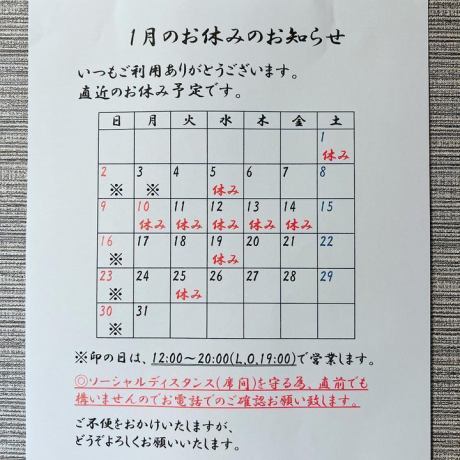 1月のお休みのお知らせ
いつもご利用ありがとうございます。
直近のお休み予定です。
日 月 火 水 木 金 土
1
休み
2 3 4 5 6 7 8
※ ※ 休み
9 10 11 12 13 14 15
休み 休み 休み 休み 休み
16 17 18 19 20 21 22
※ 休み
23 24 25 26 27 28 29
※ 休み
30 31
※
※印の日は、12:00〜20:00(L,O,19:00)で営業します。
◎ソーシャルディスタンス(席間)を守る為、直前でも
構いませんのでお電話でのご確認お願い致します。
ご不便をおかけいたしますが、
どうぞよろしくお願いいたします。